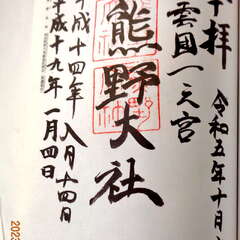 奉拝
令和五年十月
出雲國一之宮
熊野大社
平成十四年八月十四日
平成十九年一月四日
202